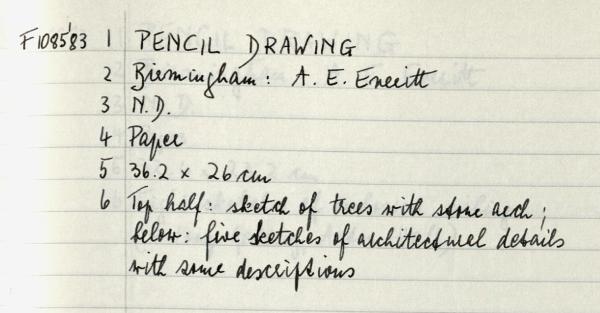 F1085'83 1 PENCIL DRAWING
2 Birmingham: A. E. Everitt
3 N.D.
4 Paper
5 36.2 x 26 cm
6 Top half: sketch of trees with stone arch;
below: five sketches of architectural details
with some descriptions